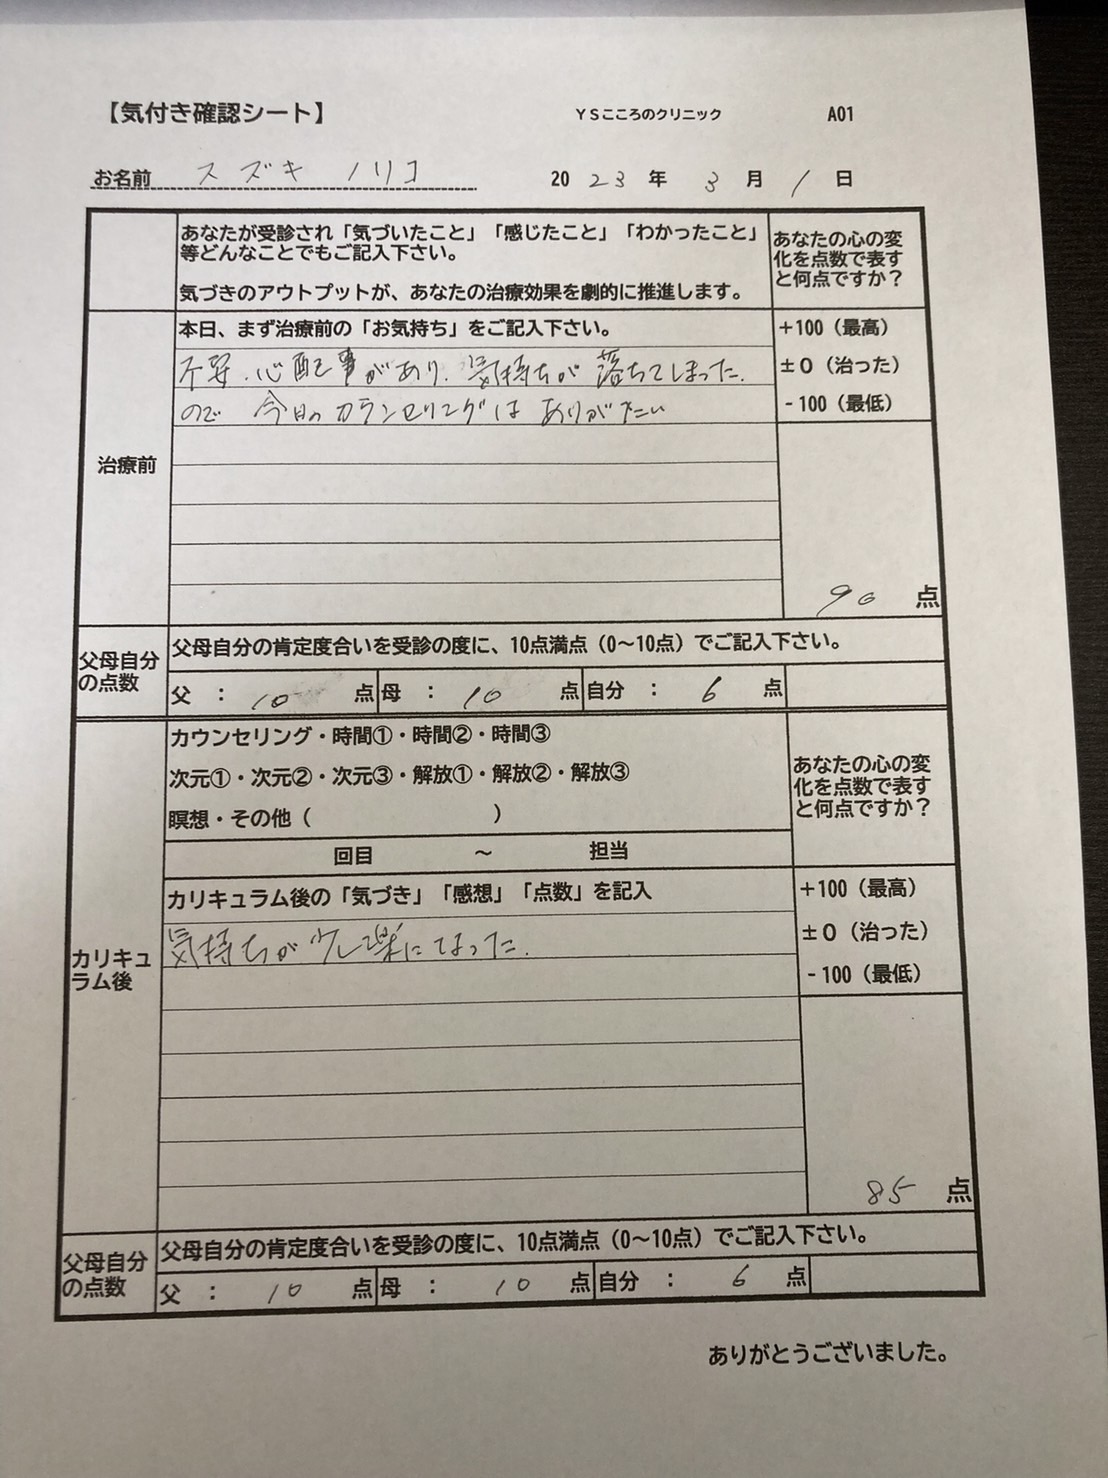 【気付き確認シート】 YSこころのクリニック A01
お名前 スズキ ノリコ 2023年 3月 1日
あなたが受診され「気づいたこと」「感じたこと」「わかったこと」
等どんなことでもご記入下さい。
気づきのアウトプットが、あなたの治療効果を劇的に推進します。
あなたの心の変
化を点数で表す
と何点ですか？
治療前
本日、まず治療前の「お気持ち」をご記入下さい。
不安、心配事があり、気持ちが落ちてしまった。
ので 今日のカウンセリングは ありがたい
+100（最高）
±0（治った）
-100（最低）
90 点
父母自分
の点数
父母自分の肯定度合いを受診の度に、10点満点（0～10点）でご記入下さい。
父 : 10 点 母 : 10 点 自分 : 6 点
カウンセリング・時間①・時間②・時間③
次元①・次元②・次元③・解放①・解放②・解放③
瞑想・その他（ ）
回目 ～ 担当
あなたの心の変
化を点数で表す
と何点ですか？
カリキュ
ラム後
カリキュラム後の「気づき」「感想」「点数」を記入
気持ちが少し楽になった。
+100（最高）
±0（治った）
-100（最低）
85 点
父母自分
の点数
父母自分の肯定度合いを受診の度に、10点満点（0～10点）でご記入下さい。
父 : 10 点 母 : 10 点 自分 : 6 点
ありがとうございました。